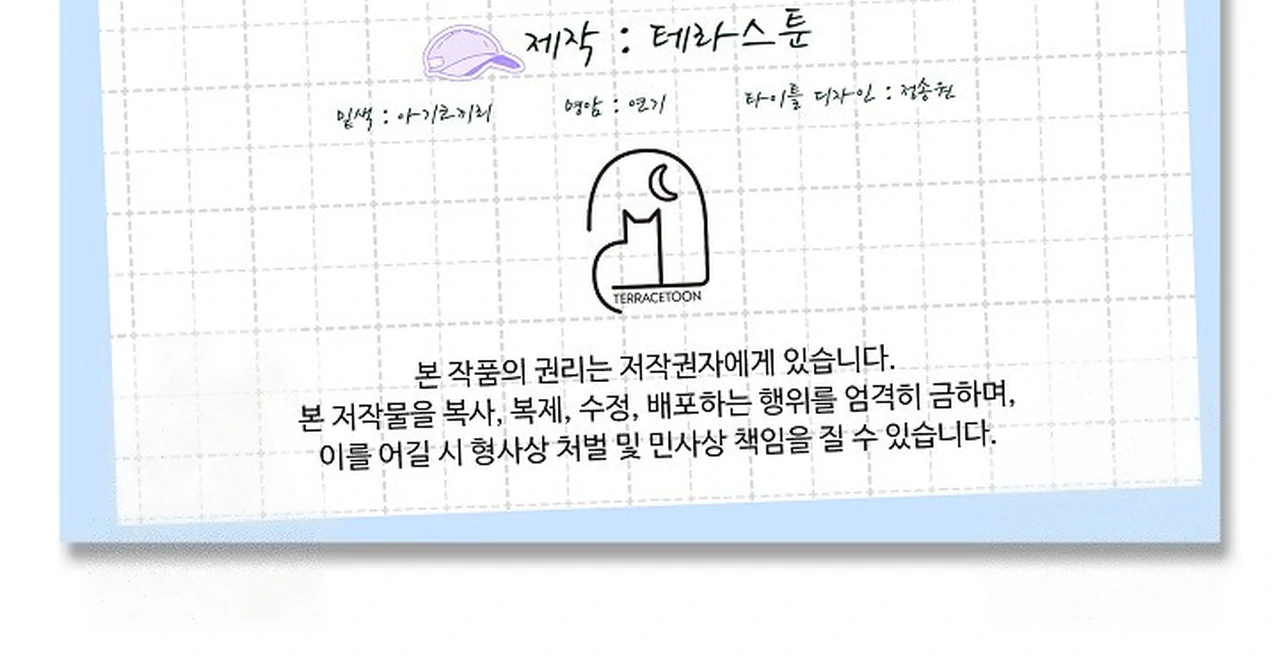 제작 : 테라스툰
밑색 : 아기코끼리 명암 : 연기 타이틀 디자인 : 정송원
TERRACETOON
본 작품의 권리는 저작권자에게 있습니다.
본 저작물을 복사, 복제, 수정, 배포하는 행위를 엄격히 금하며,
이를 어길 시 형사상 처벌 및 민사상 책임을 질 수 있습니다.